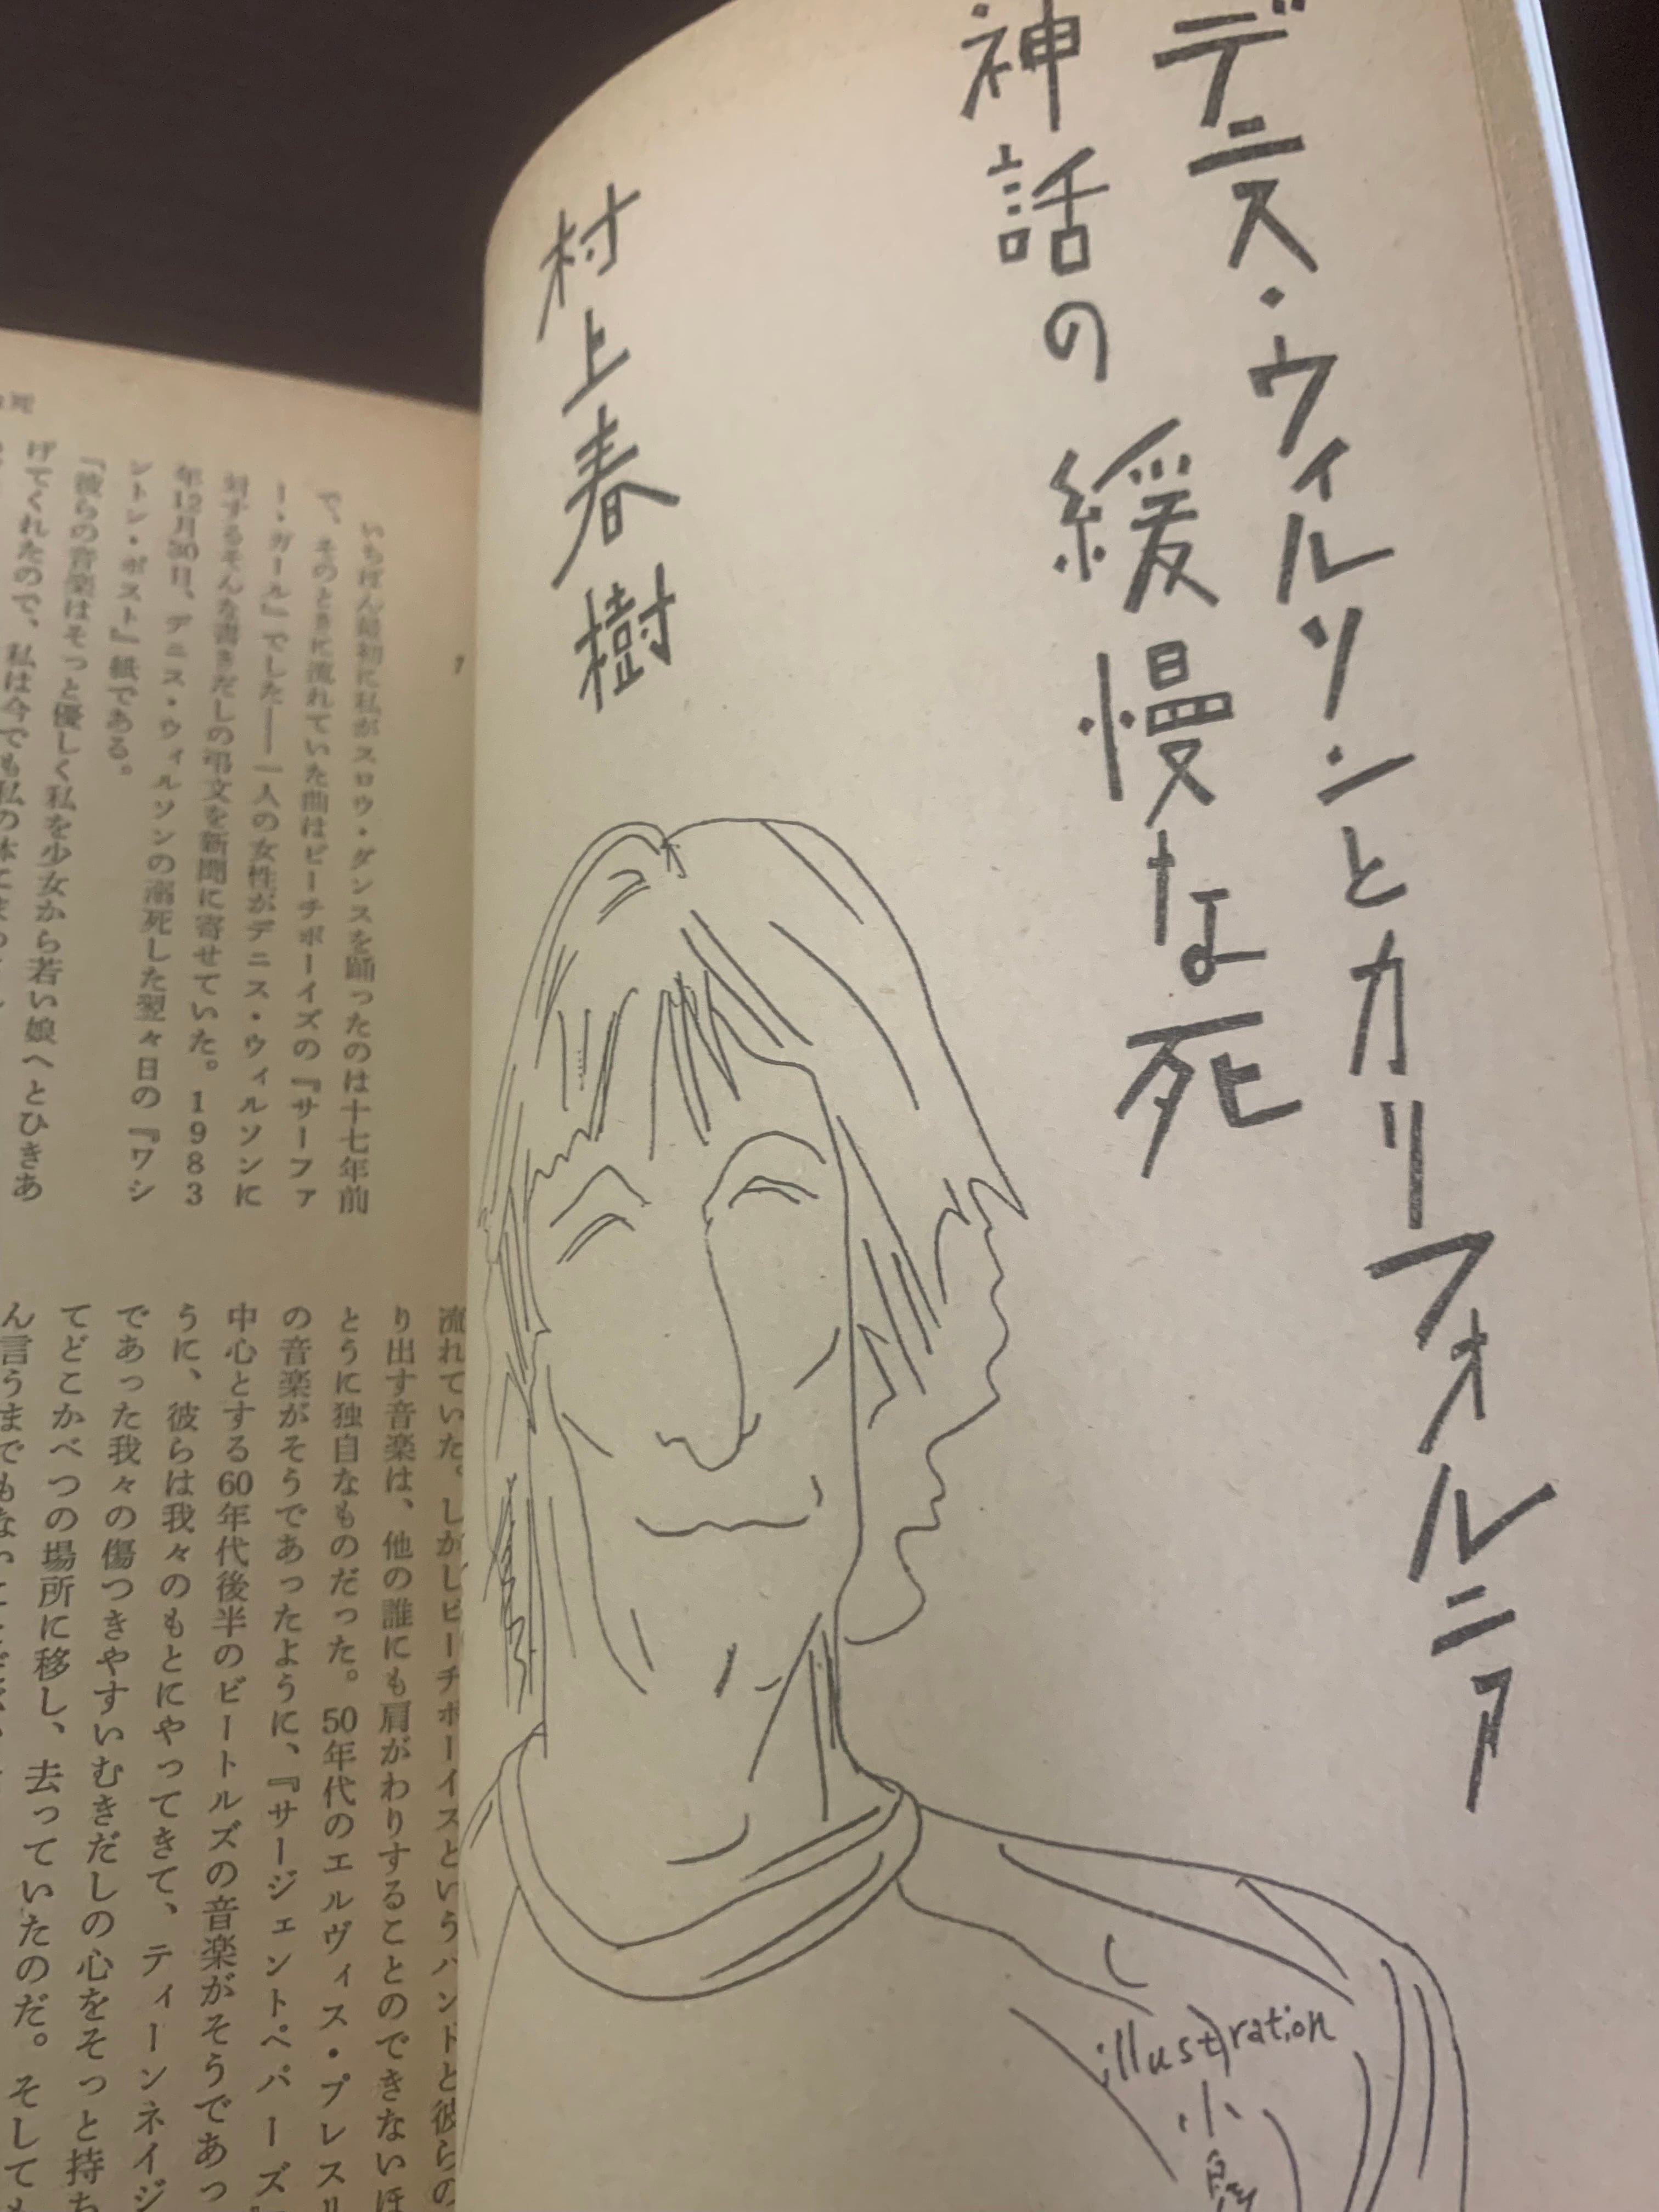 デニス・ウィルソンとカリフォルニア
神話の緩慢な死
村上春樹
illustration
小島
1
いちばん最初に私がスロウ・ダンスを踊ったのは十七年前
で、そのときに流れていた曲はビーチボーイズの『サーファ
ー・ガール』でした――一人の女性がデニス・ウィルソンに
対するそんな書きだしの弔文を新聞に寄せていた。1983
年12月30日、デニス・ウィルソンの溺死した翌々日の『ワシ
ントン・ポスト』紙である。
「彼らの音楽はそっと優しく私を少女から若い娘へとひきあ
げてくれたので、私は今でも私の体に
流れていた。しかしビーチボーイズというバンドと彼らの
り出す音楽は、他の誰にも肩がわりすることのできないほ
とうに独自なものだった。50年代のエルヴィス・プレスリ
の音楽がそうであったように、『サージェントペパーズ
中心とする60年代後半のビートルズの音楽がそうであっ
うに、彼らは我々のもとにやってきて、ティーンネイジ
であった我々の傷つきやすいむきだしの心をそっと持ち
てどこかべつの場所に移し、去っていたのだ。そして
ん言うまでもない